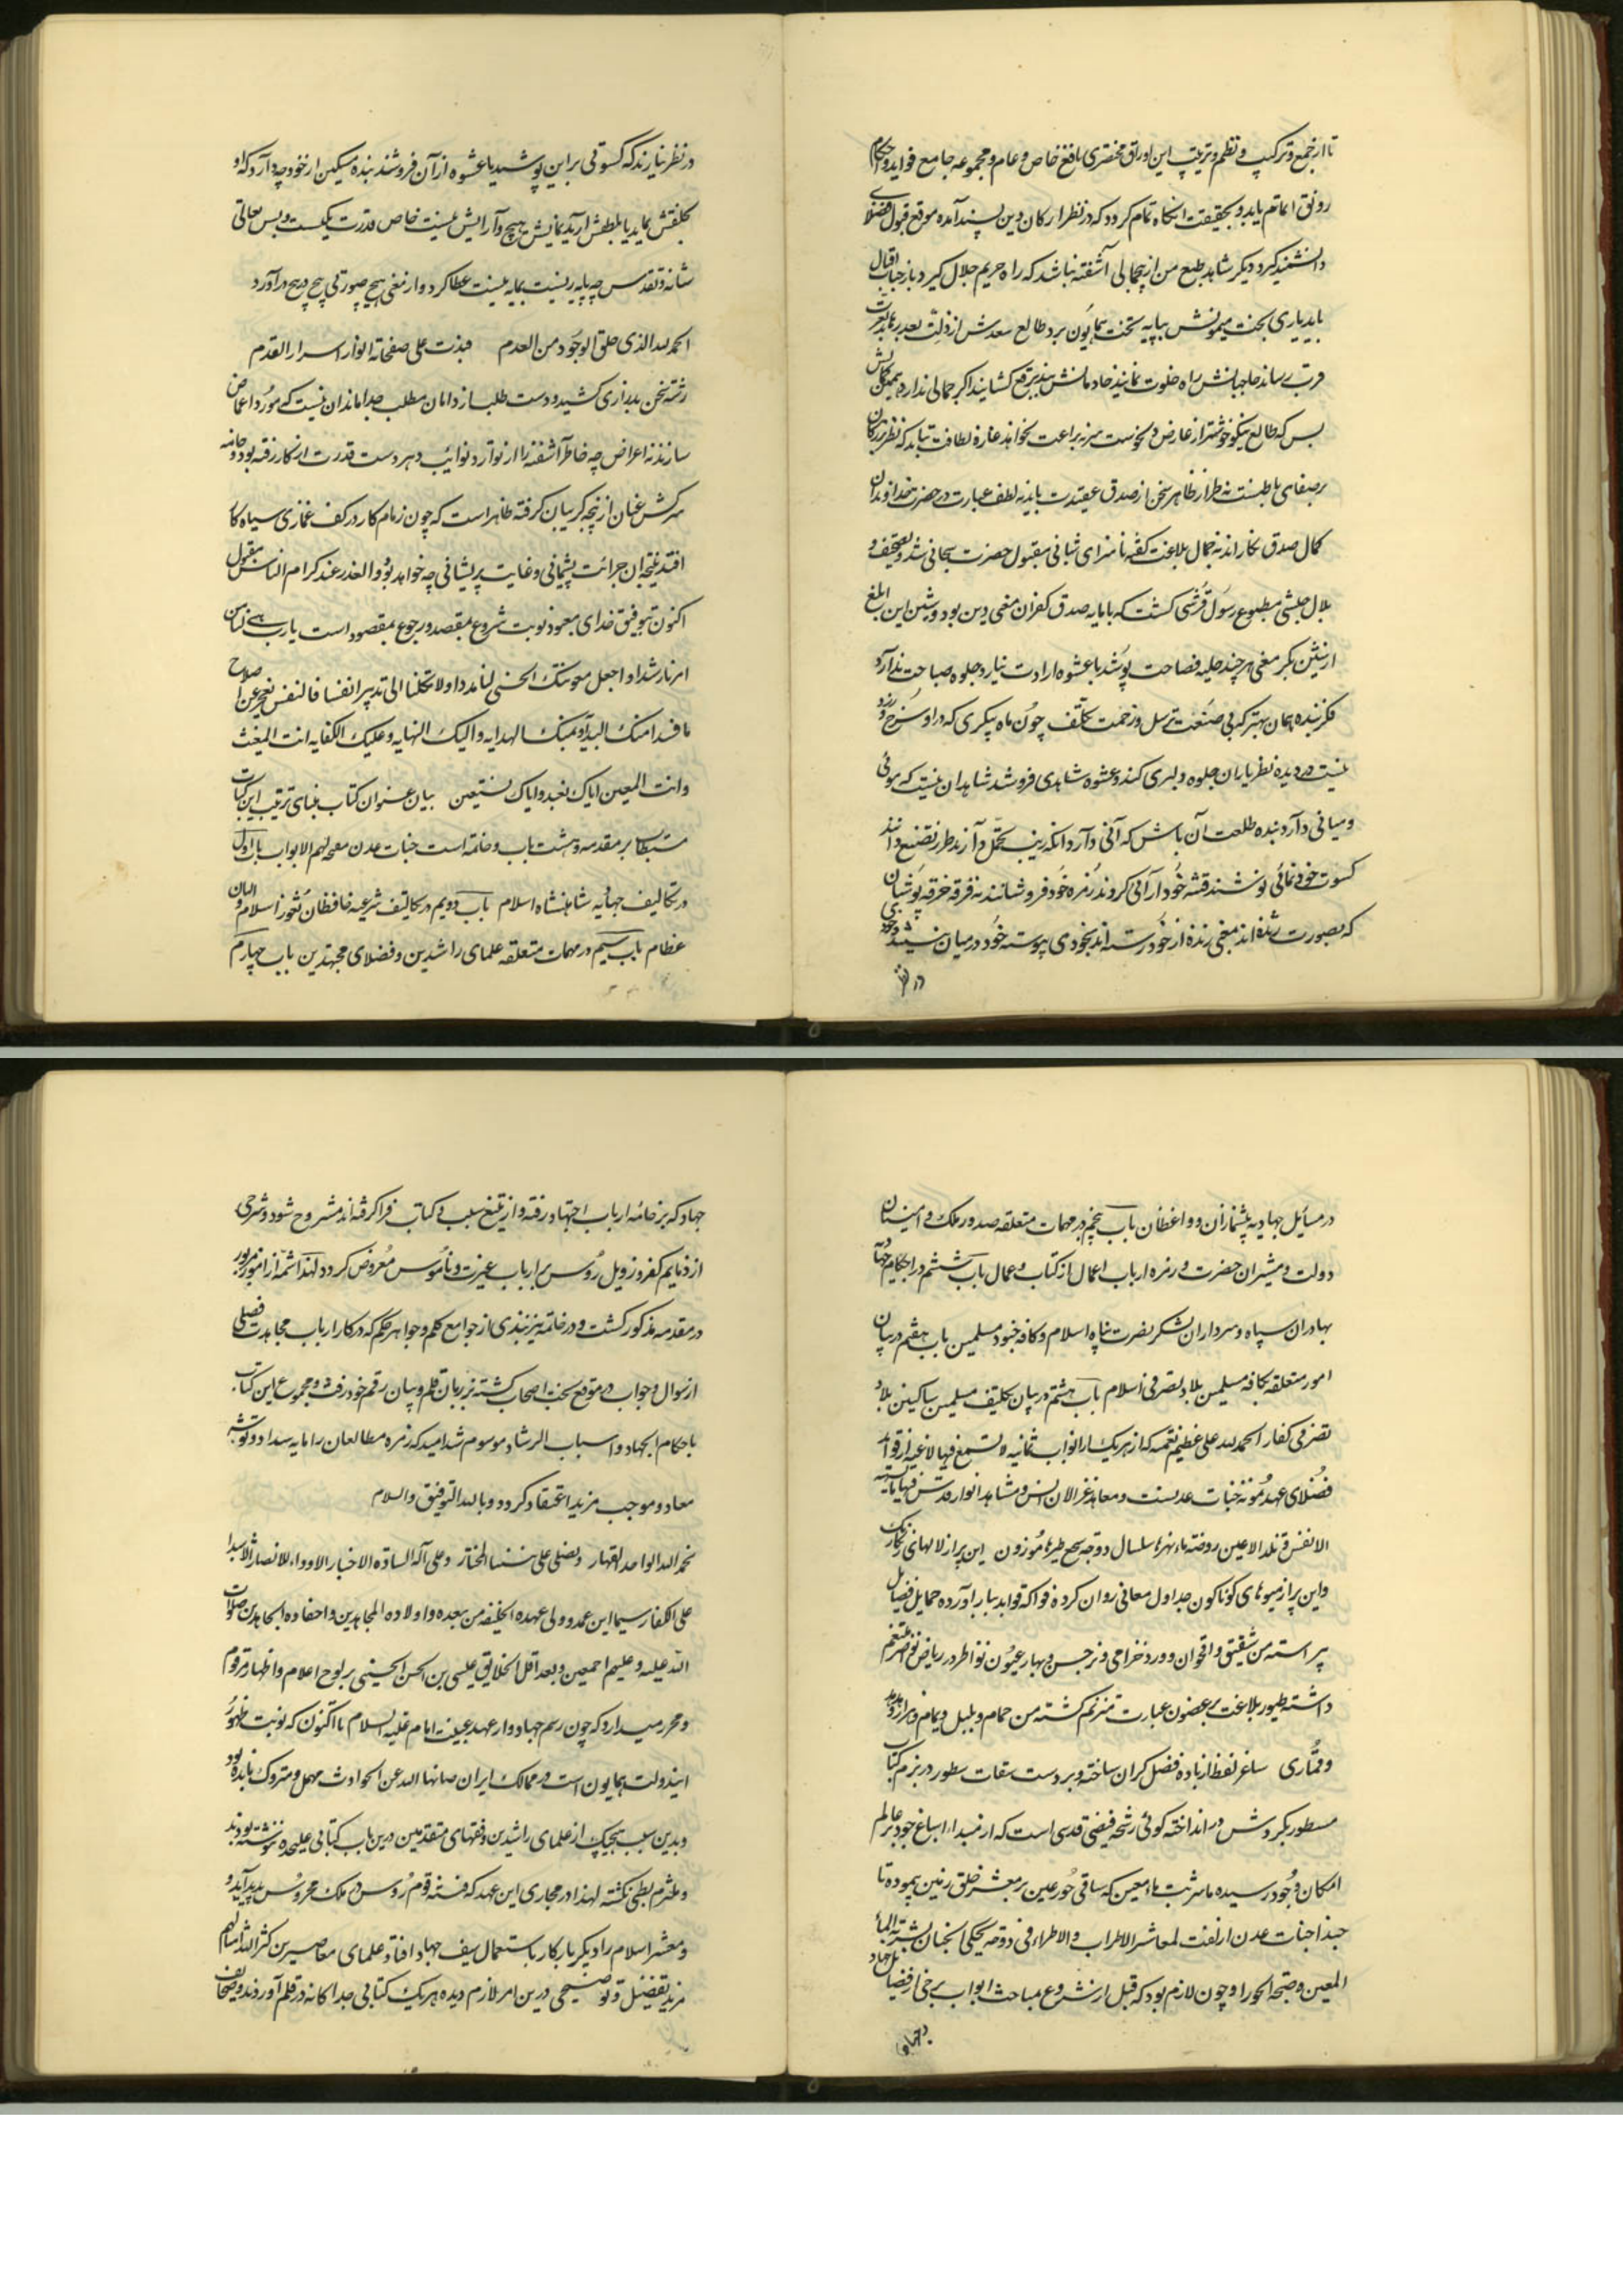 تا از جمع و ترکیب و نظم و ترتیب این اوراق مختصری نافع خاص و عام و مجموعه جامع فواید و احکام
رونق اتمام یابد و بحقیقت آنگاه تمام گردد که در نظر ارکان دین پسند آمده موقع قبول فضلای
دانشمند گیرد و دیگر شاهد طبع من از بیجمالی آشفته نباشد که راه حریم جلال گیرد و بار جناب اقبال
یابد یاری بخت میمونش بپایه تخت همایون برد طالع سعدش از ذلت بعد رهاند بعزت
قرب رساند حاجبانش راه خلوت نمایند خادمانش بند برقع گشایند اگر جمالی ندارد همین کمالش
بس که طالع نیکو خوشتر از عارض دلجوست سر براعت نخواهد غازه لطافت نیابد که نظر بزرگان
بر صفای باطنست نه طراز ظاهر سخن از صدق عقیدت باید نه لطف عبارت در حضرت خداوندان
کمال صدق بکار اند نه جمال بلاغت کفته ناسزای شبانی مقبول حضرت سبحانی شد و تصحیف و
بلال حبشی مطبوع رسول قرشی کشت که با پایه صدق کفران مغنی دین بود و شین این ابلغ
از شین بکر معنی هر چند حلیه فصاحت پوشد با عشوه ارادت نیارد جلوه صباحت ندارد
فکر بنده همان بهتر که بی صنعت ترسل و زحمت تکلف چون ماه پیکری که در او سرخ و زرد
نیست در دیده نظر یاران جلوه دلبری کند و عشوه شاهدی فروشد شاهد آن نیست که موئی
و میانی دارد بنده طلعت آن باش که آنی دارد آنانکه زیب تجمل دارند طرز تصنع دانند
کسوت خودنمائی پوشند فتنه خودآرائی کردند زمره خود فروشانند نه فرقه خرقه پوشان
که بصورت ژنده اند بمعنی زنده از خود رسته اند بیخودی پیوسته خود در میان نبینند و خودی
در نظر
در نظر نیارند که کسوتی بر این پوشید یا عشوه از آن فروشند بنده مسکین از خود چه دارد که او
بکلفتش نماید یا بلطفش آرید نمایش هیچ و آرایش نیست خاص قدرت یکیست و بس تعالی
شانه و تقدس چه پایه ریست بمایه نیست عطا کرد و از معنی هیچ صورتی هیچ در هیچ درآورد
الحمد لله الذی خلق الوجود من العدم فبدت علی صفحاته انوار اسرار القدم
رشته سخن بدرازی کشید و دست طلب از دامان مطلب جدا ماند آن نیست که مورد اعماض
سازند نه اعراض چه خاطر آشفته را از نوارد نوائب دهر دست قدرت از کار رفته بود و خامه
سرکش عنان از پنجه کریبان گرفته ظاهر است که چون زمام کار در کف غمازی سیاه کار
افتد نتیجه آن جرائت پشیمانی و غایت پریشانی چه خواهد بود و العذر عند کرام الناس مقبول
اکنون بتوفیق خدای معبود نوبت شروع بمقصد و رجوع بمقصود است یا رب هیئ لنا من
امرنا رشدا و اجعل معونتک الحسنی لنا مددا و لا تکلنا الی تدبیر انفسنا فالنفس تعجز عن اصلاح
ما فسدا منک البدایه و بک الهدایه و الیک النهایه و علیک الکفایه انت المغیث
و انت المعین ایاک نعبد و ایاک نستعین بیان عنوان کتاب بنای ترتیب این کتاب
مستطاب بر مقدمه و هشت باب و خاتمه است جنات عدن مفتحة لهم الابواب باب اول
در تکالیف جهادیه شاهنشاه اسلام باب دویم در تکالیف شرعیه حافظان ثغور اسلام و والیان
عظام باب سیم در مهمات متعلقه علمای راشدین و فضلای مجتهدین باب چهارم
در مسایل جهادیه پیشنمازان و واعظان باب پنجم در مهمات متعلقه صدور ملک و امینان
دولت و مشیران حضرت و زمره ارباب اعمال از کتاب و عمال باب ششم در احکام جهادیه
بهادران سپاه و سرداران لشکر نصرت پناه اسلام و کافه جنود مسلمین باب هفتم در بیان
امور متعلقه بکافه مسلمین بلاد تصرفی اسلام باب هشتم در بیان تکلیف مسلمین ساکنین بلاد
تصرفی کفار الحمد لله علی عظیم نعمه که از هر یک از ابواب ثمانیه لا تسمع فیها لاغیه از فواید
فضلای عهد نمونه جنات عدنست و معاهد غزالان انس و مشاهد انوار قدس فیها ما تشتهیه
الانفس و تلذ الاعین روضة ماء نهرها سلسال دوحة سجع طیرها موزون این پر از لالهای رنگارنگ
و این پر از میوهای گوناگون جداول معانی روان کرده فواکه فواید ببار آورده حمایل فضایل
پیراسته من شقیق و اقحوان و ورد خزامی و نرجس و بهار عیون نواظر در ریاض نواضر متنعم
داشته طیور بلاغت بر غصون عبارت مترنم گشته من حمام و بلبل و یمام و هزار و هدهد
و قماری ساغر لفظ از باده فضل گران ساخته و بر دست سقات سطور در بزم کتاب
مسطور بگردش در انداخته گوئی رشحه فیض قدسی است که از مبداء اسباغ جود بر عالم
امکان وجود رسیده یا شربت ماء معین که ساقی حور عین بر معشر خلق زمین پیموده تا
حبذا جنات عدن ازلفت لمعاشر الاطراب و الاطراء فی دوحة یحکی الجنان بشربة الماء
المعین و صبحة الحوراء و چون لازم بود که قبل از شروع مباحث ابواب برخی از فضایل جهاد
و جهاد
جهاد که بر خامه ارباب اجتهاد رفته و از تتبع سلب و کتاب فرا گرفته اند مشروح شود و شرحی
از ذمایم کفر و زویل روس بر ارباب غیرت و ناموس معروض گردد لهذا شمه از امور مزبور
در مقدمه مذکور گشت و در خاتمه نیز نبذی از جوامع کلم و جواهر حکم که در کار ارباب مجاهدت فصلی
از سوال و جواب در موقع بحث اصحاب گشته بزبان قلم و بیان رقم خود رفت و مجموع این کتاب
باحکام الجهاد و اسباب الرشاد موسوم شد امید که زمره مطالعان را مایه سداد و توشه
معاد و موجب مزید اعتقاد گردد و بالله التوفیق و السلام
نحمد الله الواحد القهار و نصلی علی نبینا المختار و علی آله السادة الاخیار الاوداء للانصار الاشداء
علی الکفار سیما ابن عمه و ولی عهده الخلیفه من بعده و اولاده المجاهدین و احفاده الجاهدین صلوات
الله علیه و علیهم اجمعین و بعد اقل الخلایق عیسی بن الحسن الحسینی بر لوح اعلام و اظهار مرقوم
و محرر میدارد که چون رسم جهاد و از عهد غیبت امام علیه السلام تا اکنون که نوبت ظهور
ایندولت همایون است در ممالک ایران صانها الله عن الحوادث مهمل و متروک مانده بود
و بدین سبب هیچیک از علمای راشدین و فقهای متقدمین درین باب کتابی علیحده ننوشته بودند
و ملتزم بطی نگشته لهذا در مجاری این عهد که فتنه قوم روس در ملک محروس پدید آید و
و معشر اسلام را دیگر بار کار باستعمال سیف جهاد افتاد علمای معاصرین کثر الله امثالهم
مزید تفضیل و توضیحی درین امر لازم دیده هر یک کتابی جداگانه در قلم آوردند و صحائف